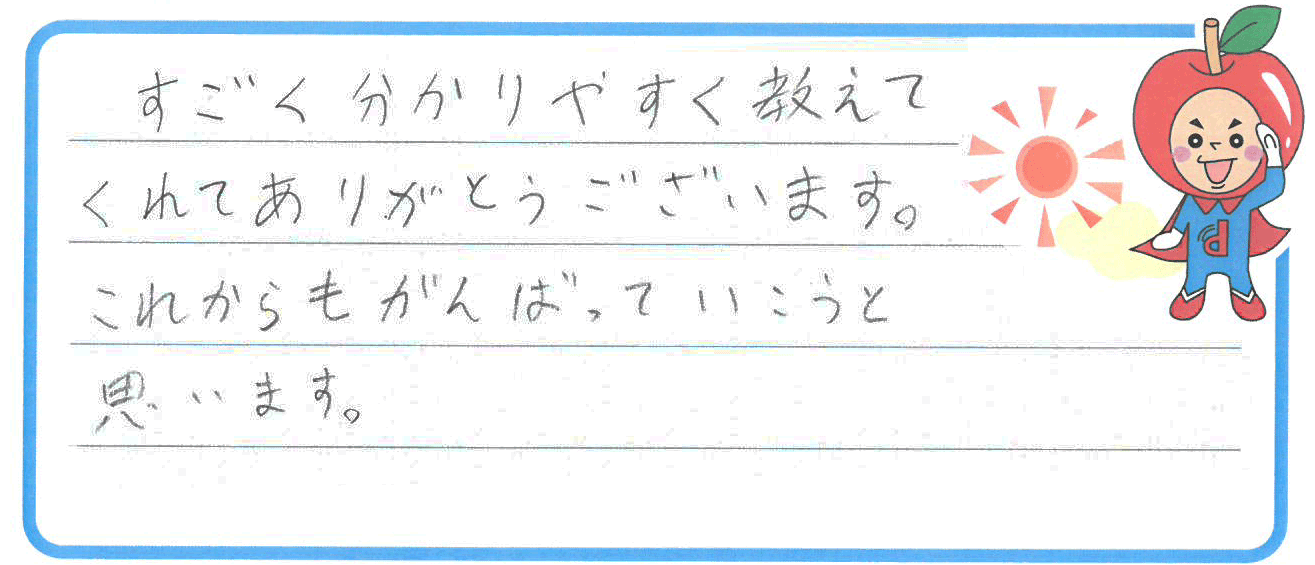 すごく分かりやすく教えて
くれてありがとうございます。
これからもがんばっていこうと
思います。